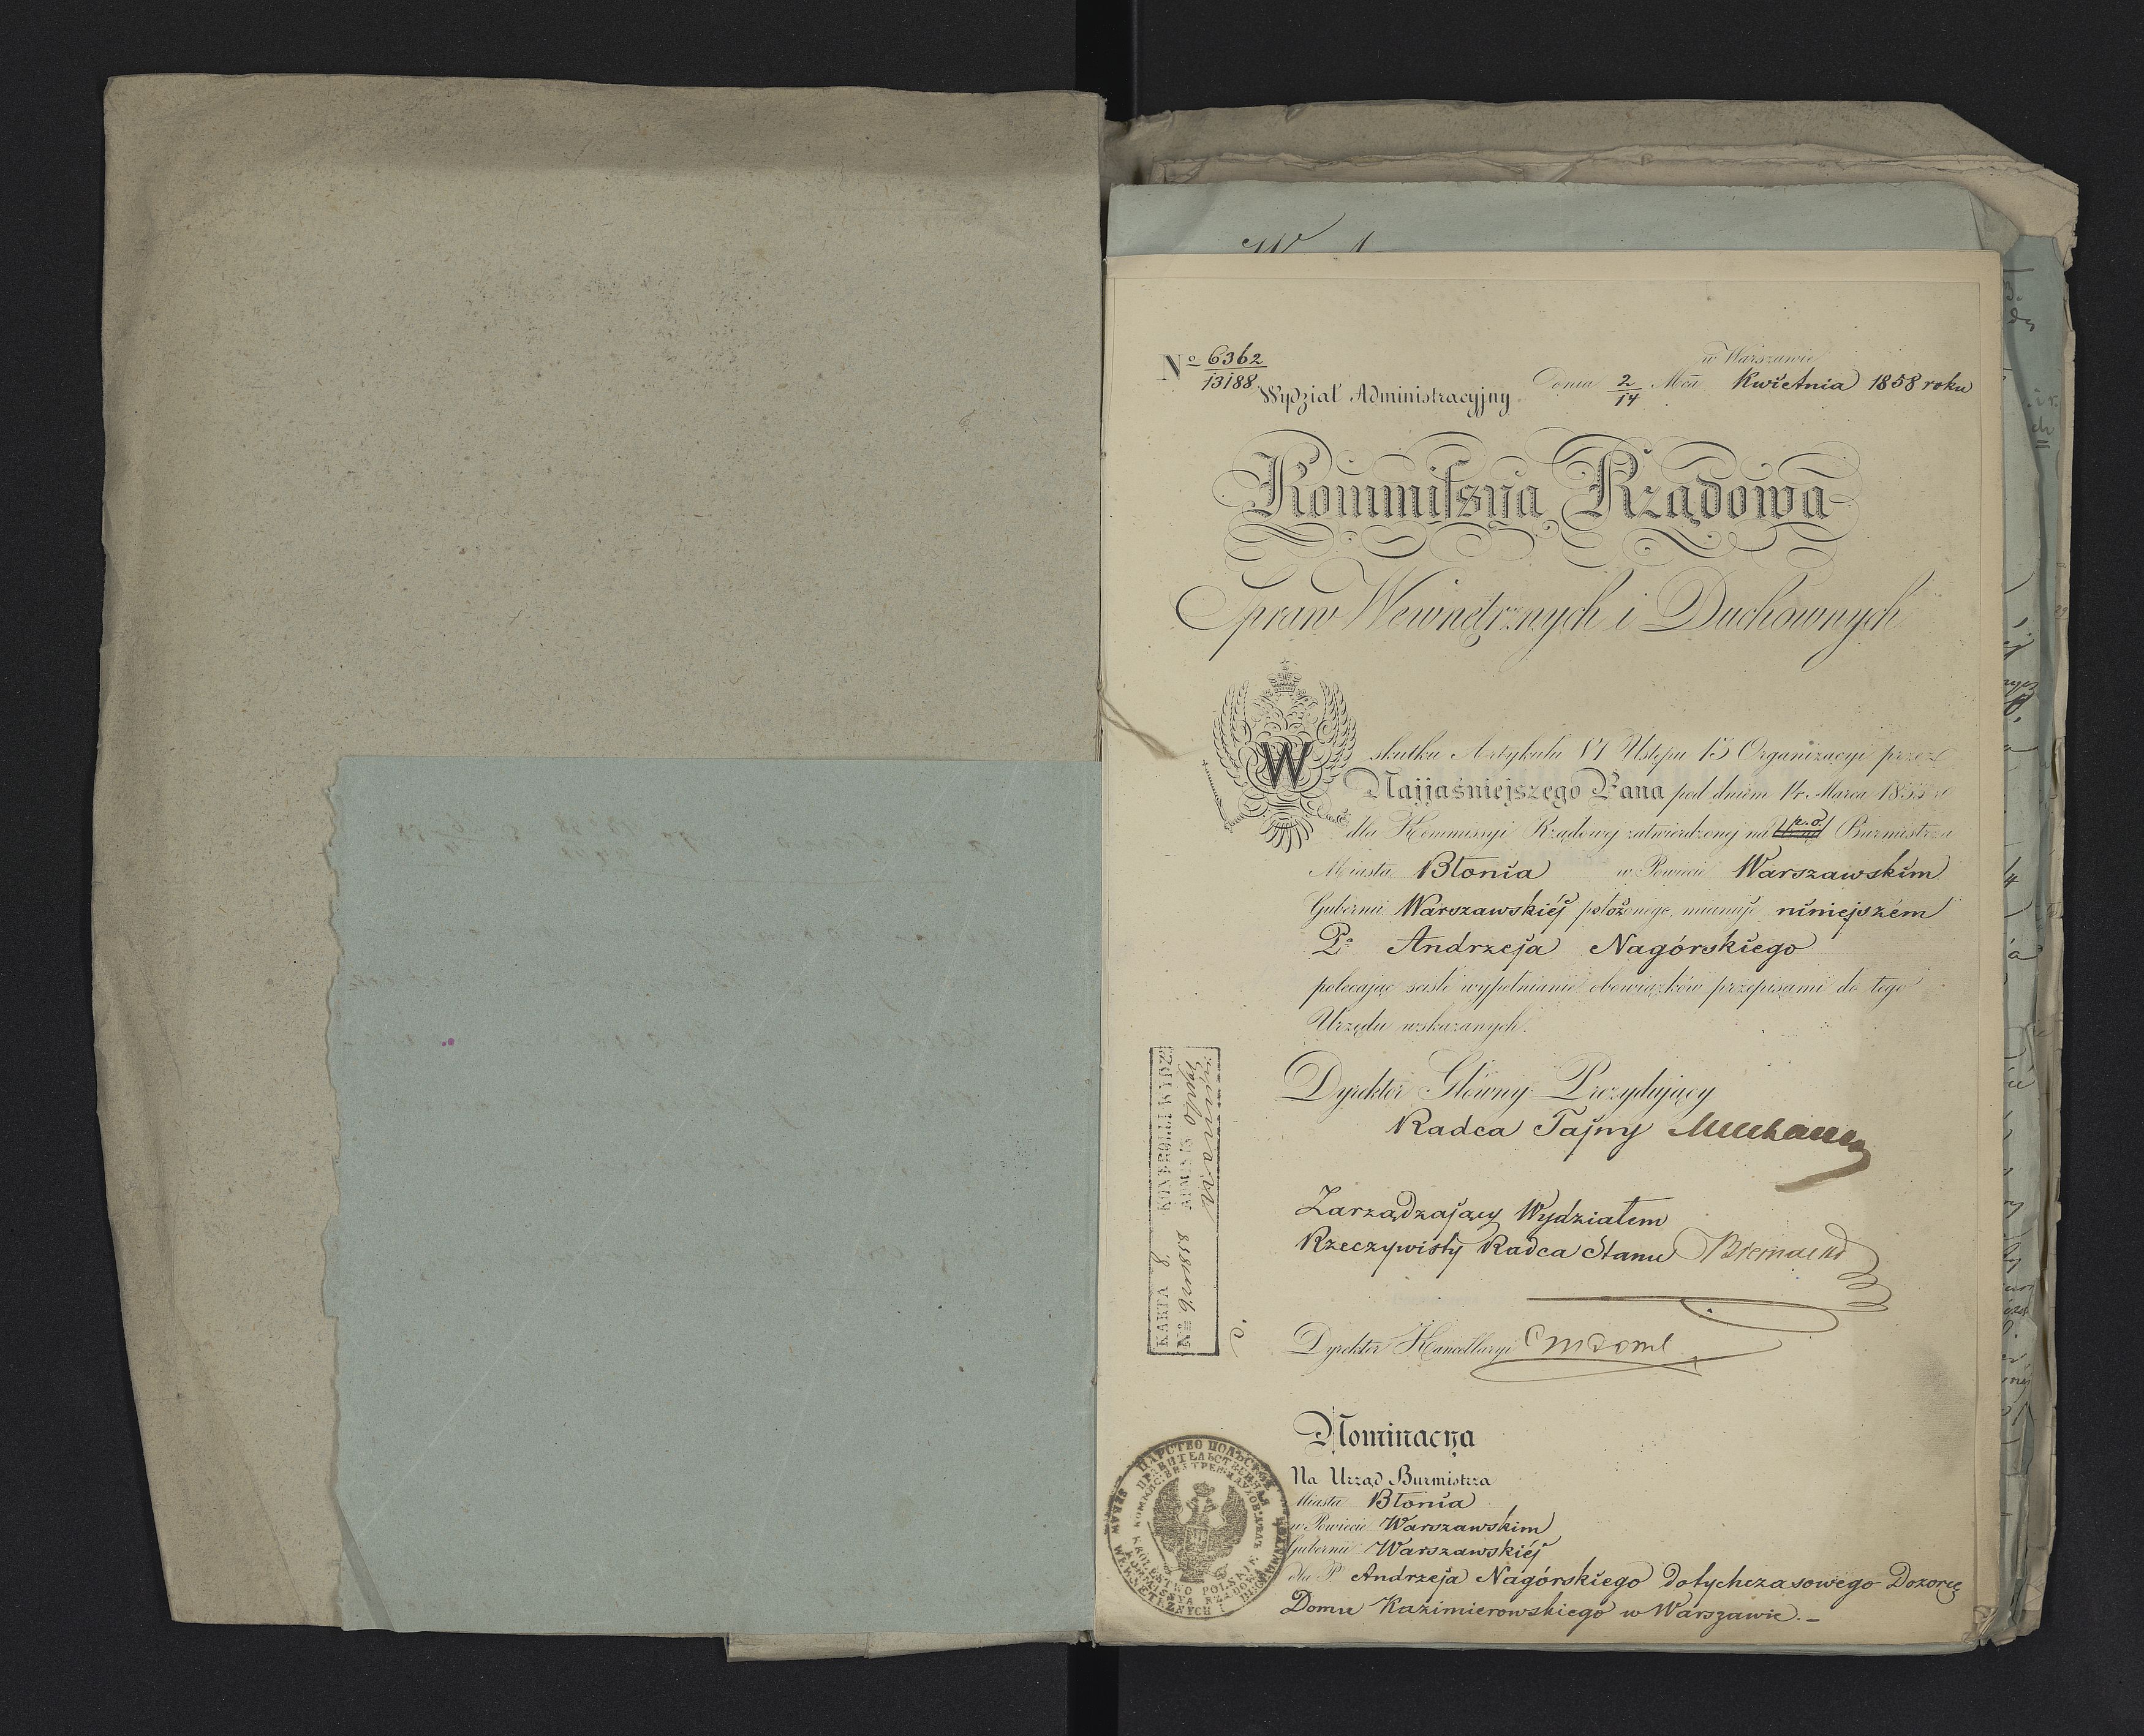 Nº 6362
13188
Wydział Administracyjny
w Warszawie
Dnia 2/14 Mca Kwietnia 1858 roku
Kommissya Rządowa
Spraw Wewnętrznych i Duchownych
W skutku Artykułu VI Ustępu 15 Organizacyi przez
Najjaśniejszego Pana pod dniem 14 Marca 1833 r
dla Kommissyi Rządowej zatwierdzonej na p.o. Burmistrza
Miasta Błonia w Powiecie Warszawskim
Gubernii Warszawskiéj położonego, mianuje niniejszém
Pª Andrzeja Nagórskiego
polecając ściśłe wypełnianie obowiązków przepisami do tego
Urzędu wskazanych.
Dyrektor Główny Prezydujący
Radca Tajny Muchanow
Zarządzający Wydziałem
Rzeczywisty Radca Stanu Biernacki
Dyrektor Kancellaryi
KARTA 8 KONTROLLI WYDZ.
Nº
Nominacya
Na Urząd Burmistrza
Miasta Błonia
w Powiecie Warszawskim
Gubernii Warszawskiéj
dla P. Andrzeja Nagórskiego dotychczasowego Dozorcę
Domu Kazimierowskiego w Warszawie.-
ЦАРСТВО ПОЛЬСКОЕ
ПРАВИТЕЛЬСТВЕННАЯ
KRÓLESTWO POLSKIE
KOMMISSYA RZĄDOWA
SPRAW WEWNĘTRZNYCH I DUCHOWNYCH